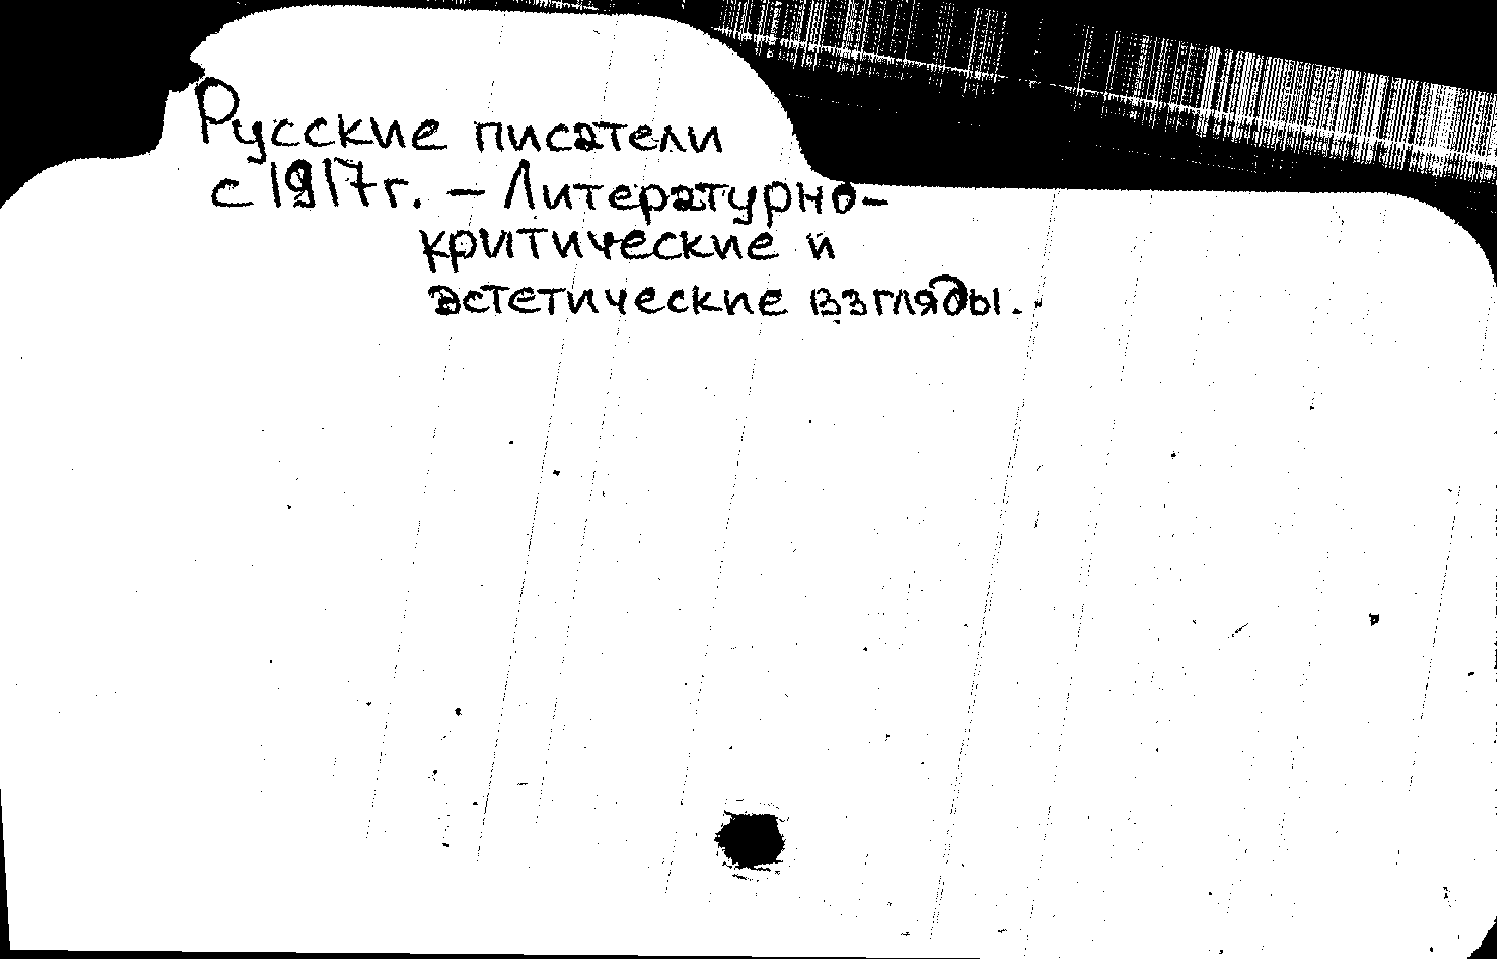 Русские писатели
с 1917г. – Литературно-
критические и
эстетические взгляды.